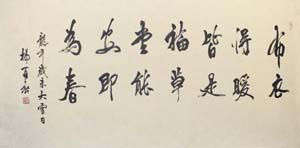 布衣
得暖
皆是
福草
堂能
安即
為春
龍年歲末大雪日
楊